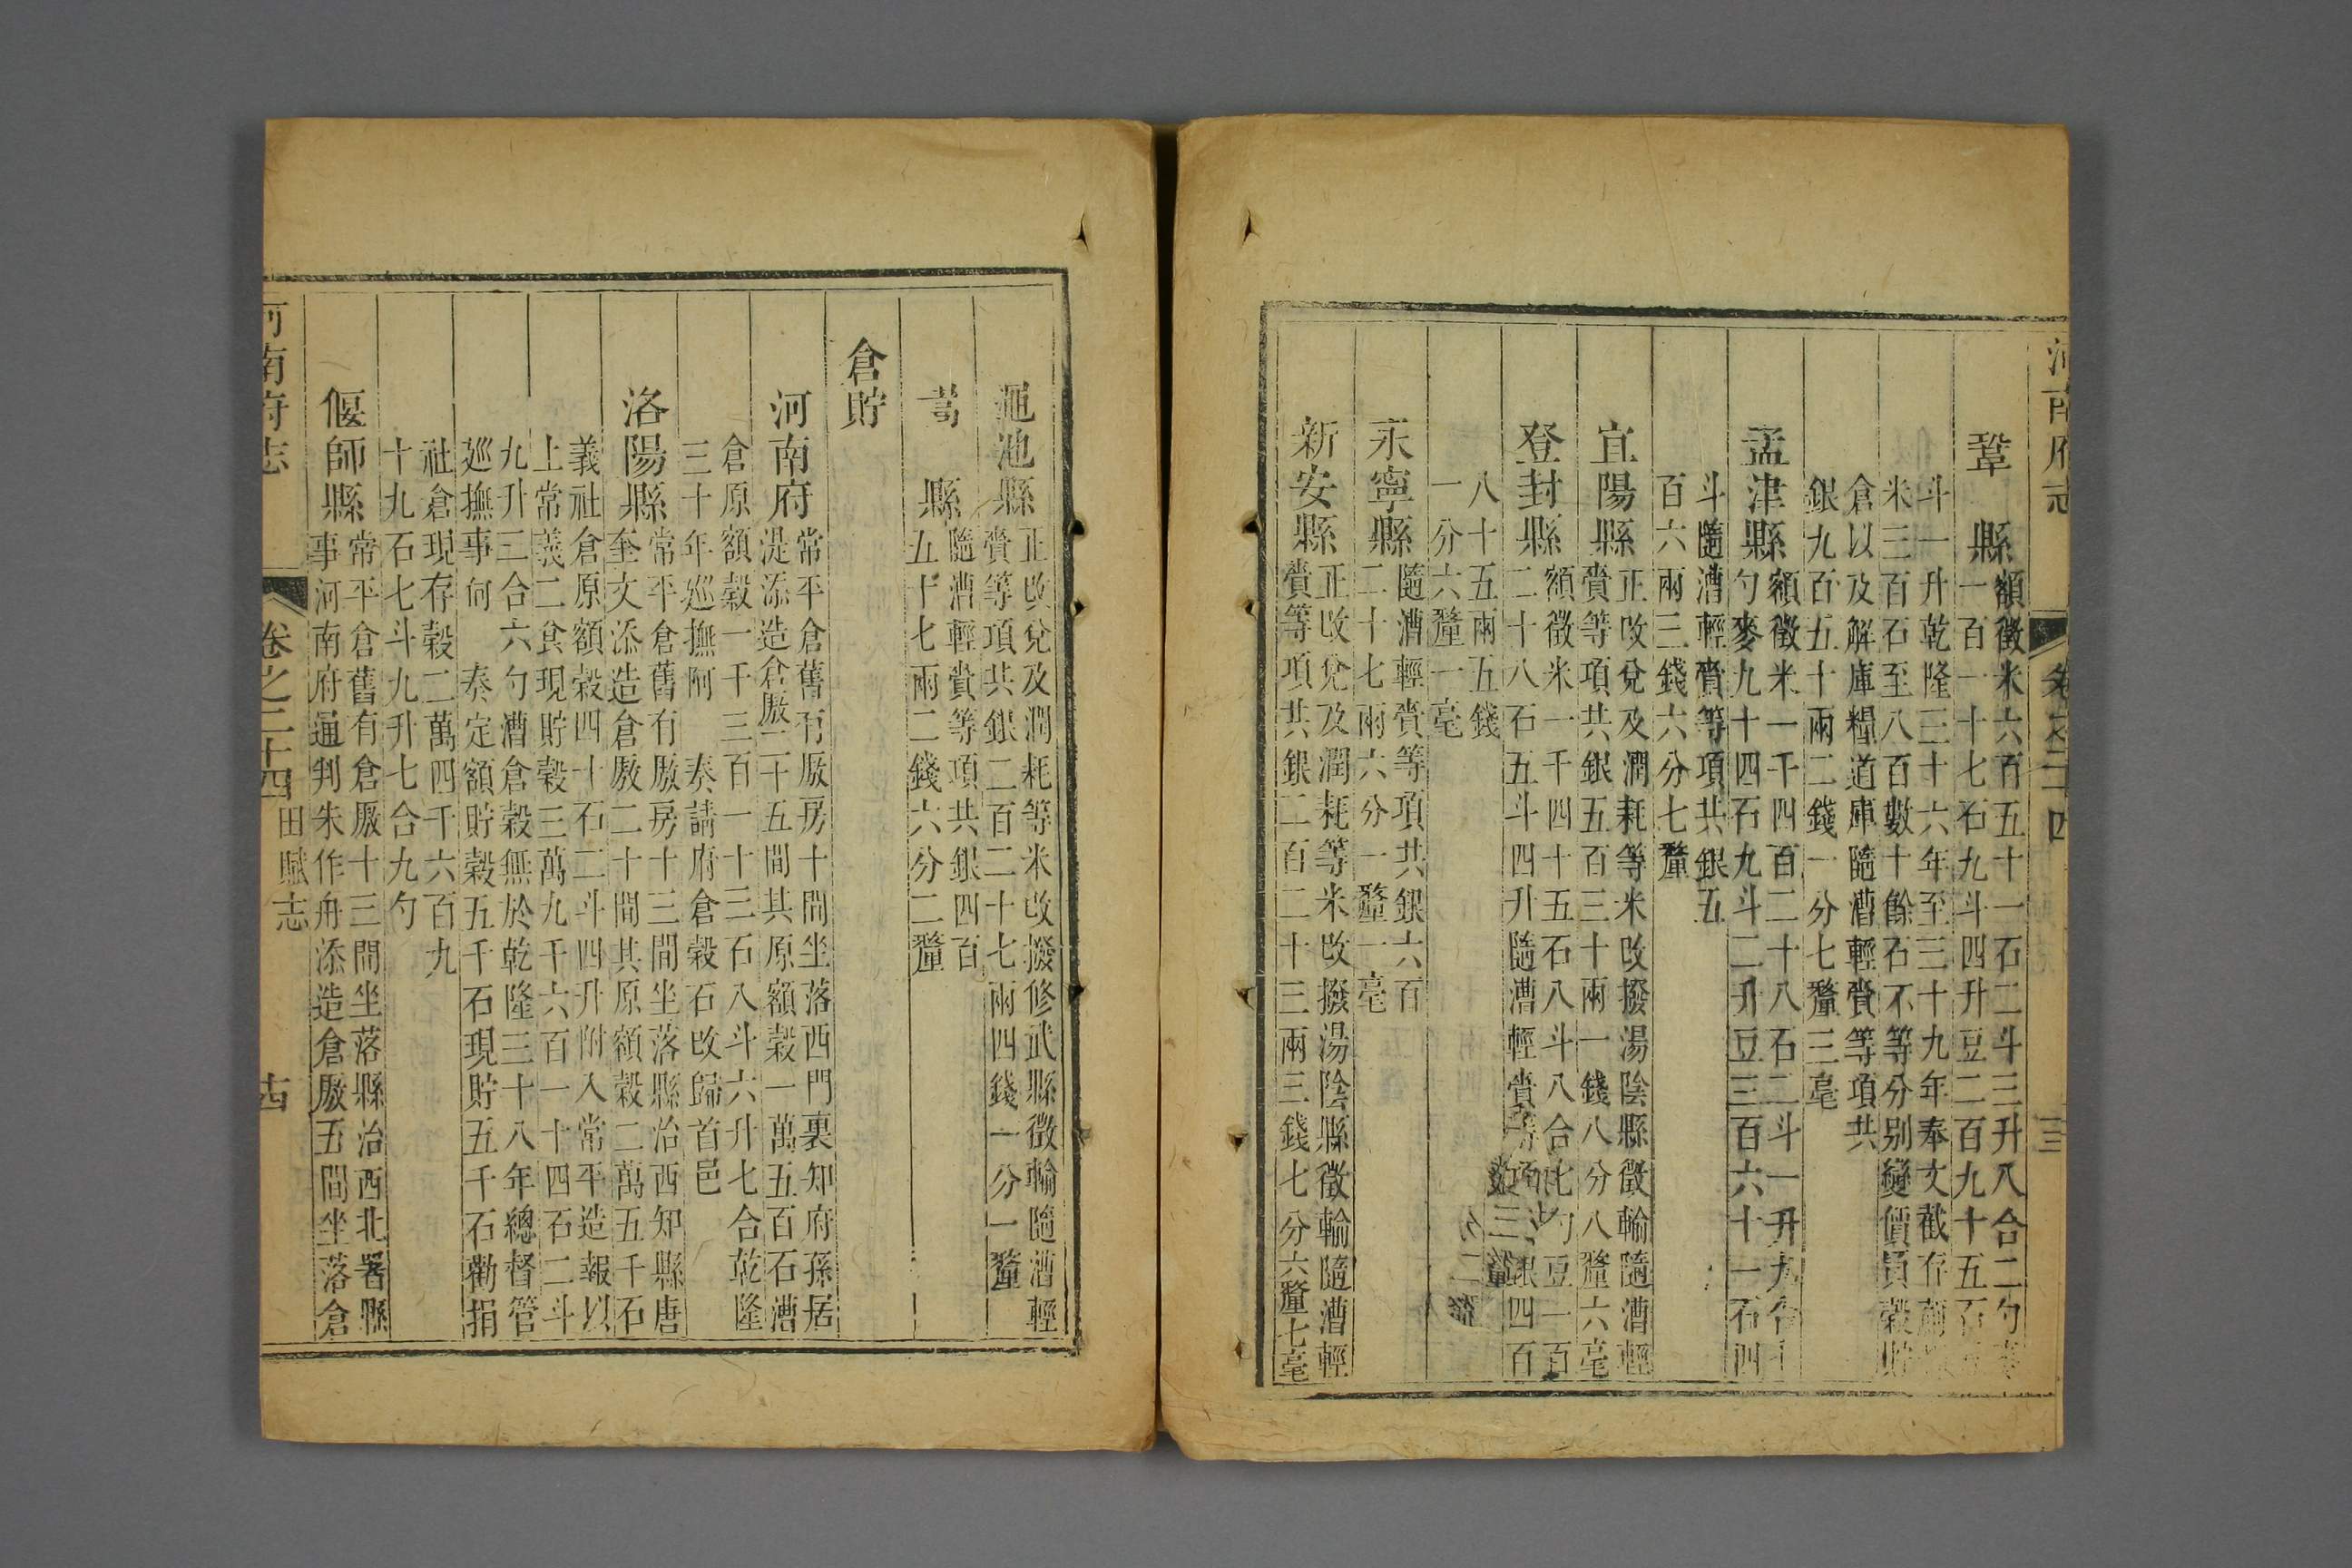 河南府志 卷之二十四 十三
鞏 縣
額徵米六百五十一石二斗三升八合二勺
一百一十七石九斗四升豆二百九十五石
斗一升乾隆三十六年至三十九年奉文截存
米三百石至八百數十餘石不等分别變價買榖貯
倉以及解庫糧道庫隨漕輕賫等項共
銀九百五十兩二錢一分七釐三毫
孟津縣
額徵米一千四百二十八石二斗一升九合
勺麥九十四石九斗二升豆三百六十一石四
斗隨漕輕賫等項共銀五
百六兩三錢六分七釐
宜陽縣
正改兌及潤耗等米改撥湯陰縣徵輸隨漕輕
賫等項共銀五百三十兩一錢八分八釐六毫
登封縣
額徵米一千四十五石八斗八合七勺豆一百
二十八石五斗四升隨漕輕賫等項銀四百
八十五兩五錢
一分六釐一毫
永寧縣
隨漕輕賫等項共銀六百
二十七兩六分一釐一毫
新安縣
正改兌及潤耗等米改撥湯陰縣徵輸隨漕輕
賫等項共銀二百二十三兩三錢七分六釐七毫
黽池縣
正改兌及潤耗等米改撥修武縣徵輸隨漕輕
賫等項共銀二百二十七兩四錢一分一釐
嵩 縣
隨漕輕賫等項共銀四百
五十七兩二錢六分二釐
倉貯
河南府
常平倉舊有厫房十間坐落西門裏知府孫居
湜添造倉厫二十五間其原額榖一萬五百石漕
倉原額榖一千三百一十三石八斗六升七合乾隆
三十年巡撫阿 奏請府倉榖石改歸首邑
洛陽縣
常平倉舊有厫房十三間坐落縣治西知縣唐
奎文添造倉厫二十間其原額榖二萬五千石
義社倉原額榖四十石二斗四升附入常平造報以
上常義二倉現貯榖三萬九千六百一十四石二斗
九升三合六勺漕倉榖無於乾隆三十八年總督管
巡撫事何 奏定額貯榖五千石現貯五千石勸捐
社倉現存榖二萬四千六百九
十九石七斗九升七合九勺
偃師縣
常平倉舊有倉厫十三間坐落縣治西北署縣
事河南府通判朱作舟添造倉厫五間坐落倉
河南府志 卷之二十四 田賦志 十四